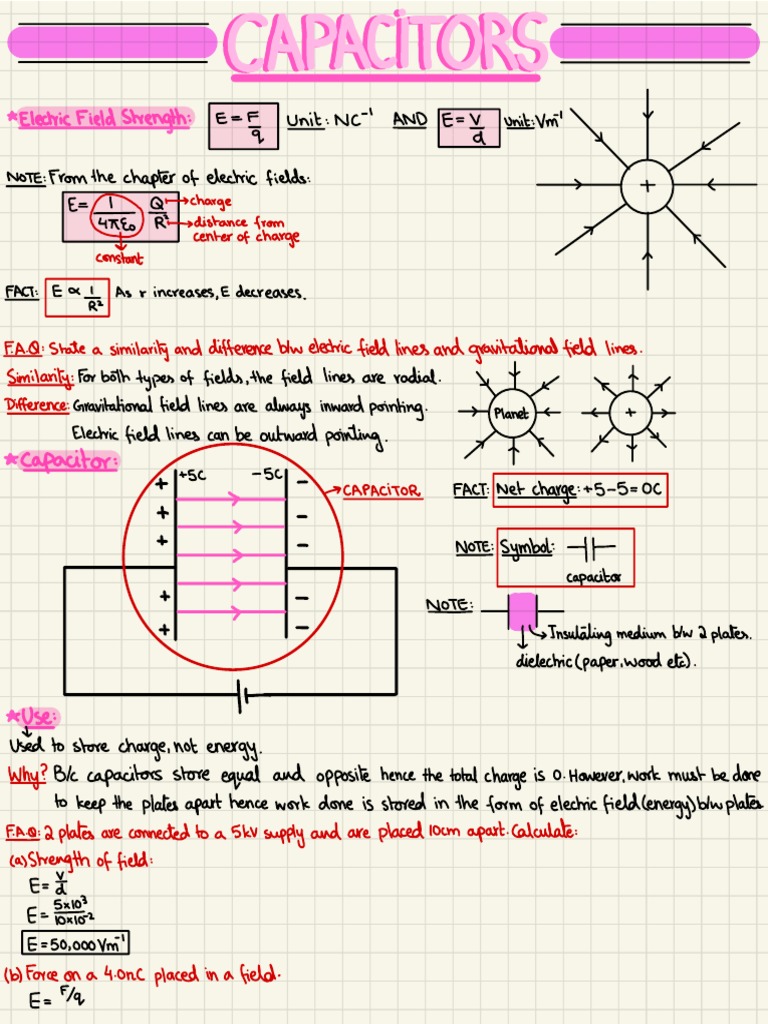 CAPACITORS
*Electric Field Strength: E = F/q Unit: NC⁻¹ AND E = V/d Unit: Vm⁻¹
+
NOTE: From the chapter of electric fields:
E = 1/4πε₀ Q/R² → charge
→ distance from
center of charge
constant
FACT: E ∝ 1/R² As r increases, E decreases.
F.A.Q: State a similarity and difference b/w electric field lines and gravitational field lines.
Similarity: For both types of fields, the field lines are radial.
Difference: Gravitational field lines are always inward pointing.
Electric field lines can be outward pointing.
Planet +
*Capacitor:
+5C -5C
+ + + + +
- - - - -
→ CAPACITOR
FACT: Net charge: +5-5 = 0C
NOTE: Symbol:
capacitor
NOTE:
Insulating medium b/w 2 plates.
dielectric (paper, wood etc).
*Use:
Used to store charge, not energy.
Why? B/c capacitors store equal and opposite hence the total charge is 0. However, work must be done
to keep the plates apart hence work done is stored in the form of electric field (energy) b/w plates
F.A.Q: 2 plates are connected to a 5kv supply and are placed 10cm apart. Calculate:
(a) Strength of field:
E = V/d
E = 5x10³/10x10⁻²
E = 50,000 Vm⁻¹
(b) Force on a 4.0nC placed in a field.
E = F/q